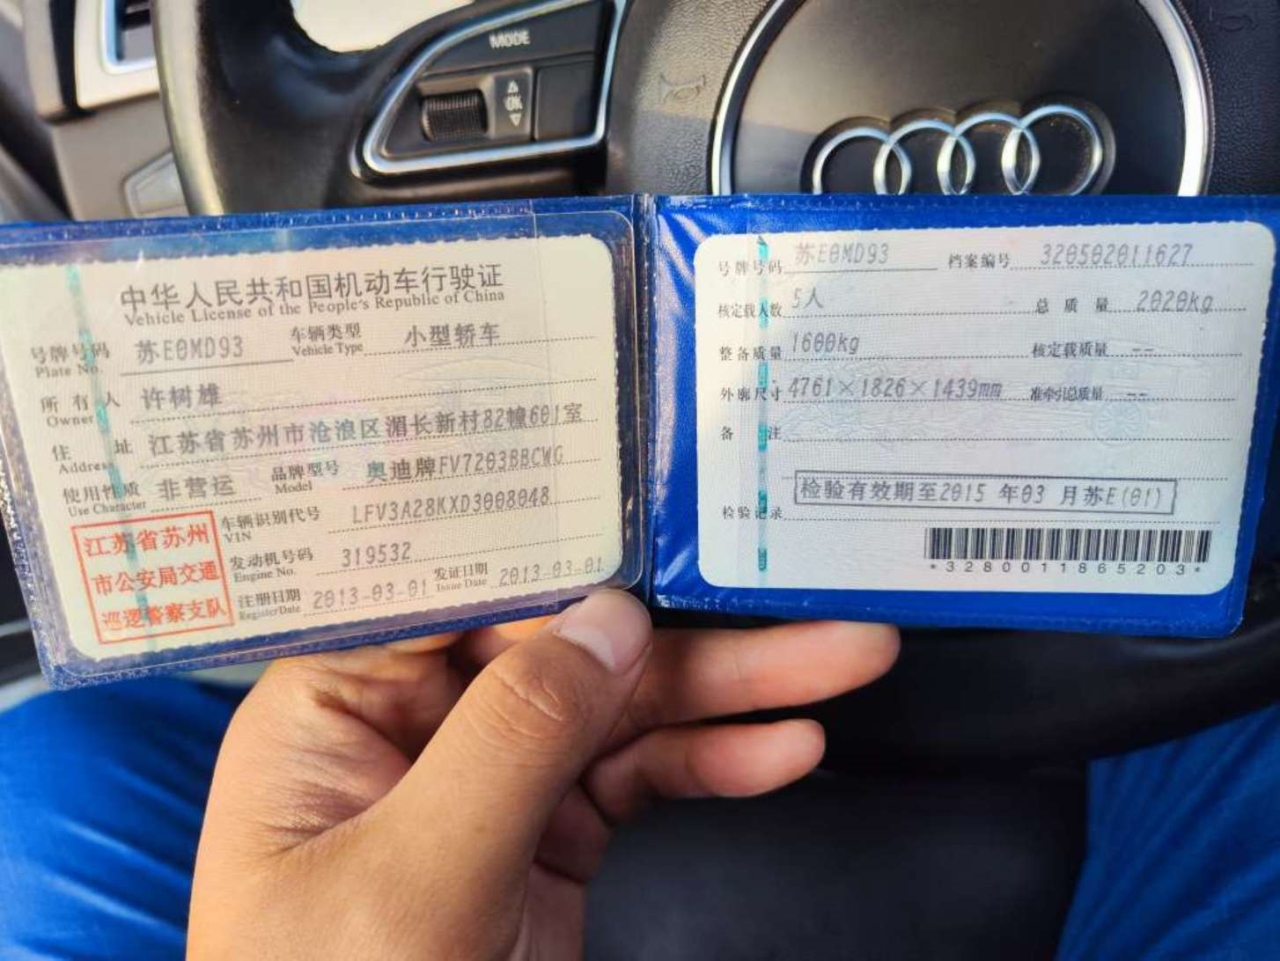 MODE
OK
中华人民共和国机动车行驶证
Vehicle License of the People's Republic of China
号牌号码 苏E0MD93 车辆类型 小型轿车
Plate No. Vehicle Type
所有人 许树雄
Owner
住址 江苏省苏州市沧浪区湄长新村82幢601室
Address
使用性质 非营运 品牌型号 奥迪牌FV7203BBCWG
Use Character Model
车辆识别代号 LFV3A28KXD3008048
VIN
发动机号码 319532
Engine No.
注册日期 2013-03-01 发证日期 2013-03-01
Register Date Issue Date
江苏省苏州
市公安局交通
巡逻警察支队
号牌号码 苏E0MD93 档案编号 320502011627
核定载人数 5人 总质量 2020kg
整备质量 1600kg 核定载质量 --
外廓尺寸 4761×1826×1439mm 准牵引总质量 --
备注
检验有效期至2015 年03 月苏E(01)
检验记录
*3280011865203*